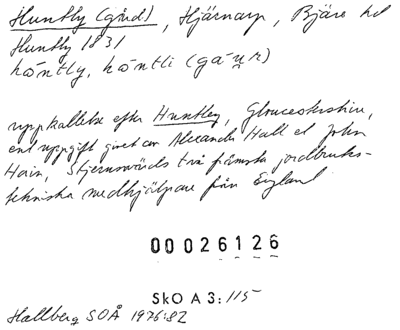 Huntly (gård), Hjärnarp, Bjäre hd
Huntly 1831
hö̀ntly, hö̀ntli (gá u̯ r)
uppkallelse efter Huntley, Gloucestershire,
enl uppgift givet av Alexander Hall el John
Hain, Stjernswärds två främsta jordbruks-
tekniska medhjälpare från England
00026126
SkO A3: 115
Hallberg SOÅ 1976:82